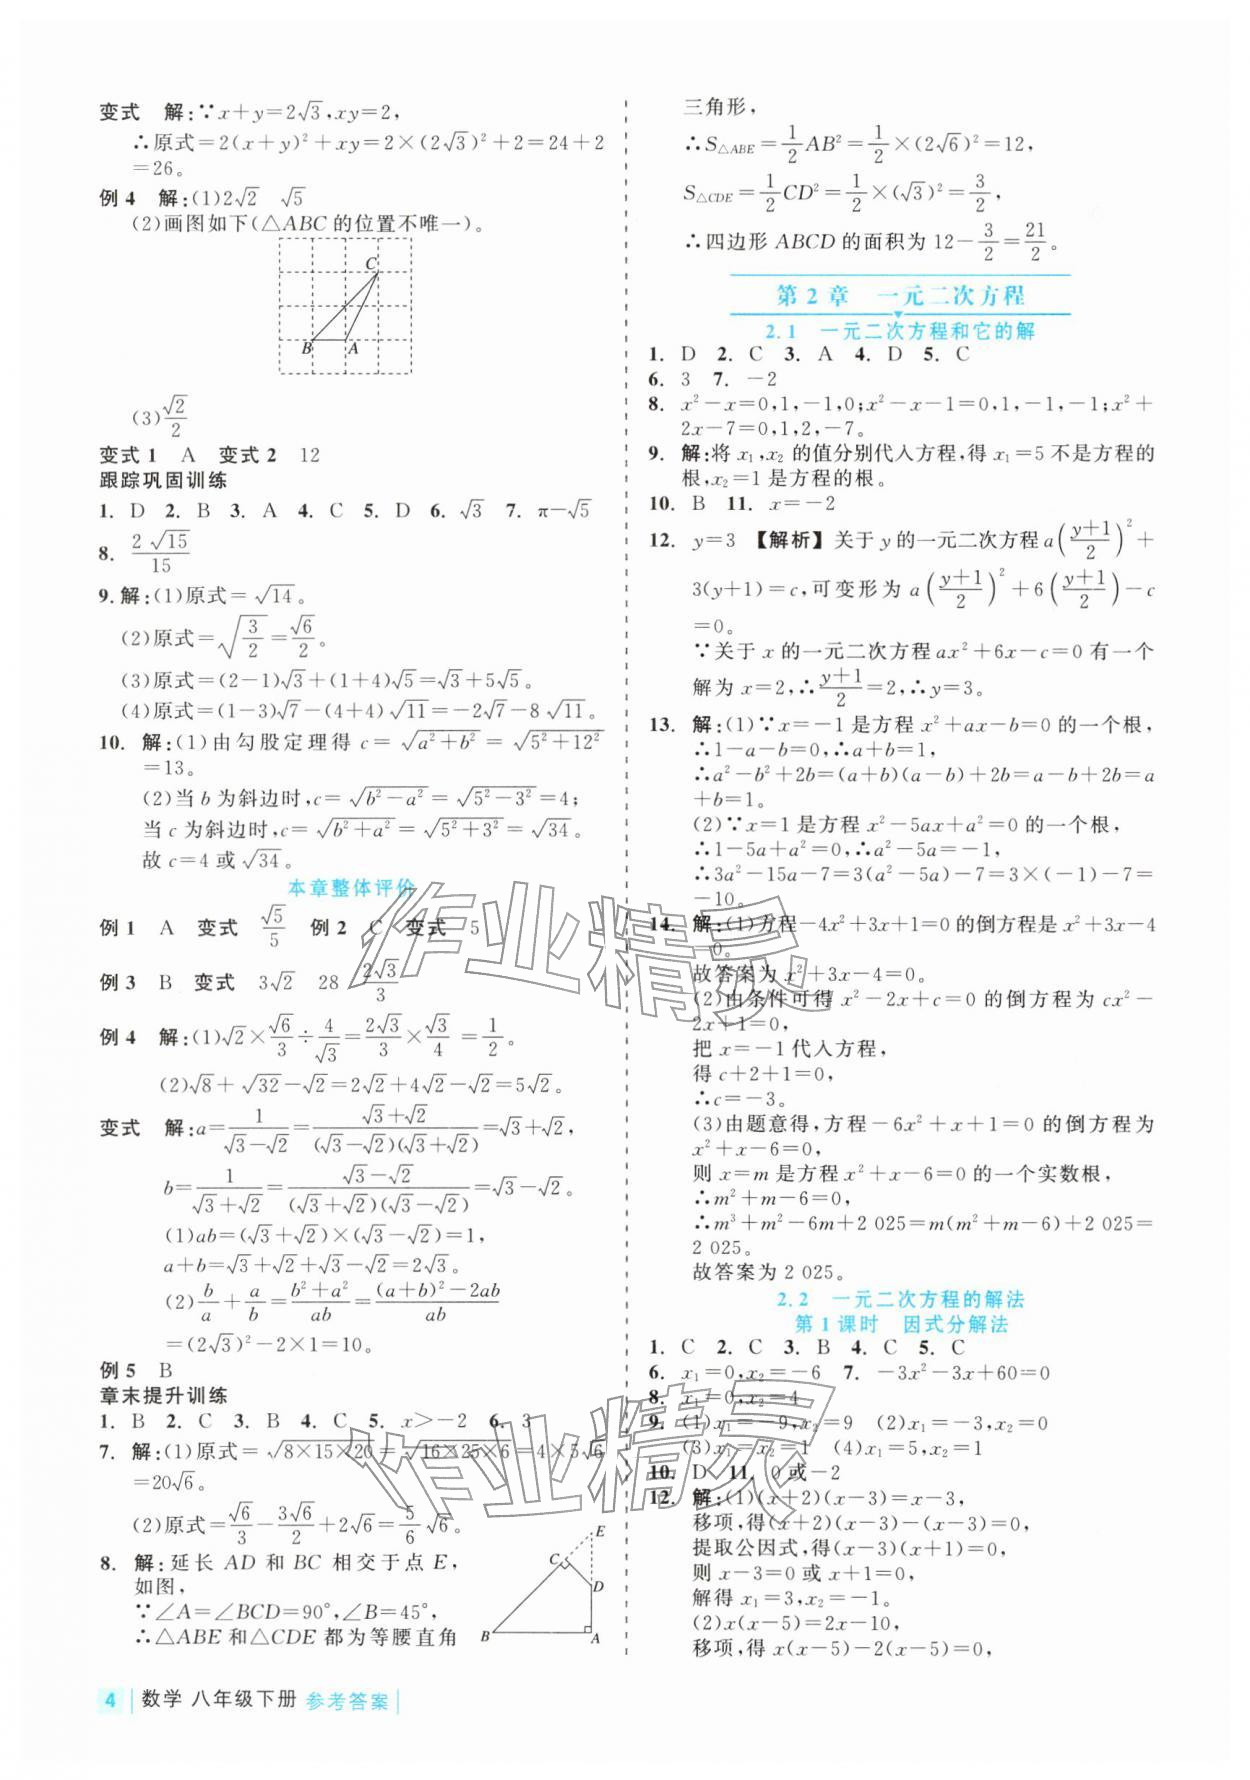 变式 解:∵x+y=2√3,xy=2,
∴原式=2(x+y)²+xy=2×(2√3)²+2=24+2
=26。
例4 解:(1)2√2 √5
(2)画图如下(△ABC的位置不唯一)。
C
B A
(3)√2/2
变式1 A 变式2 12
跟踪巩固训练
1. D 2. B 3. A 4. C 5. D 6. √3 7. π-√5
8. 2√15/15
9.解:(1)原式=√14。
(2)原式=√(3/2)=√6/2。
(3)原式=(2-1)√3+(1+4)√5=√3+5√5。
(4)原式=(1-3)√7-(4+4)√11=-2√7-8√11。
10. 解:(1)由勾股定理得c=√(a²+b²)=√(5²+12²)
=13。
(2)当b为斜边时,c=√(b²-a²)=√(5²-3²)=4;
当c为斜边时,c=√(b²+a²)=√(5²+3²)=√34。
故c=4或√34。
本章整体评价
例1 A 变式 √5/5 例2 C 变式 5
例3 B 变式 3√2 28 2√3/3
例4 解:(1)√2×√6/3÷4/√3=2√3/3×√3/4=1/2。
(2)√8+√32-√2=2√2+4√2-√2=5√2。
变式 解:a=1/(√3-√2)=(√3+√2)/((√3-√2)(√3+√2))=√3+√2,
b=1/(√3+√2)=(√3-√2)/((√3+√2)(√3-√2))=√3-√2。
(1)ab=(√3+√2)×(√3-√2)=1,
a+b=√3+√2+√3-√2=2√3。
(2)b/a+a/b=(b²+a²)/ab=((a+b)²-2ab)/ab
=(2√3)²-2×1=10。
例5 B
章末提升训练
1. B 2. C 3. B 4. C 5. x>-2 6. 3
7. 解:(1)原式=√(8×15×20)=√(16×25×6)=4×5√6
=20√6。
(2)原式=√6/3-3√6/2+2√6=5/6√6。
8. 解:延长AD和BC相交于点E,
如图,
∵∠A=∠BCD=90°,∠B=45°,
∴△ABE和△CDE都为等腰直角
E
C
D
B A
三角形,
∴S△ABE=1/2AB²=1/2×(2√6)²=12,
S△CDE=1/2CD²=1/2×(√3)²=3/2,
∴四边形ABCD的面积为12-3/2=21/2。
第2章 一元二次方程
2.1 一元二次方程和它的解
1. D 2. C 3. A 4. D 5. C
6. 3 7. -2
8. x²-x=0,1,-1,0;x²-x-1=0,1,-1,-1;x²+
2x-7=0,1,2,-7。
9. 解:将x₁,x₂的值分别代入方程,得x₁=5不是方程的
根,x₂=1是方程的根。
10. B 11. x=-2
12. y=3 【解析】关于y的一元二次方程a((y+1)/2)²+
3(y+1)=c,可变形为a((y+1)/2)²+6((y+1)/2)-c
=0。
∵关于x的一元二次方程ax²+6x-c=0有一个
解为x=2,∴(y+1)/2=2,∴y=3。
13. 解:(1)∵x=-1是方程x²+ax-b=0的一个根,
∴1-a-b=0,∴a+b=1,
∴a²-b²+2b=(a+b)(a-b)+2b=a-b+2b=a
+b=1。
(2)∵x=1是方程x²-5ax+a²=0的一个根,
∴1-5a+a²=0,∴a²-5a=-1,
∴3a²-15a-7=3(a²-5a)-7=3×(-1)-7=
-10。
14. 解:(1)方程-4x²+3x+1=0的倒方程是x²+3x-4
=0。
故答案为x²+3x-4=0。
(2)由条件可得x²-2x+c=0的倒方程为cx²-
2x+1=0,
把x=-1代入方程,
得c+2+1=0,
∴c=-3。
(3)由题意得,方程-6x²+x+1=0的倒方程为
x²+x-6=0,
则x=m是方程x²+x-6=0的一个实数根,
∴m²+m-6=0,
∴m³+m²-6m+2 025=m(m²+m-6)+2 025=
2 025。
故答案为2 025。
2.2 一元二次方程的解法
第1课时 因式分解法
1. C 2. C 3. B 4. C 5. C
6. x₁=0,x₂=-6 7. -3x²-3x+60=0
8. x₁=0,x₂=4
9. (1)x₁=-9,x₂=9 (2)x₁=-3,x₂=0
(3)x₁=x₂=1 (4)x₁=5,x₂=1
10. D 11. 0或-2
12. 解:(1)(x+2)(x-3)=x-3,
移项,得(x+2)(x-3)-(x-3)=0,
提取公因式,得(x-3)(x+1)=0,
则x-3=0或x+1=0,
解得x₁=3,x₂=-1。
(2)x(x-5)=2x-10,
移项,得x(x-5)-2(x-5)=0,
4 数学 八年级下册 参考答案
作业精灵
作业精灵